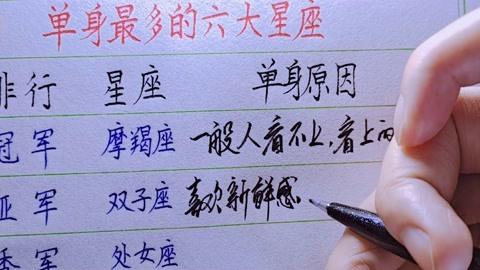 单身最多的六大星座
排行 星座 单身原因
冠军 摩羯座 一般人看不上,看上的
亚军 双子座 喜欢新鲜感
季军 处女座